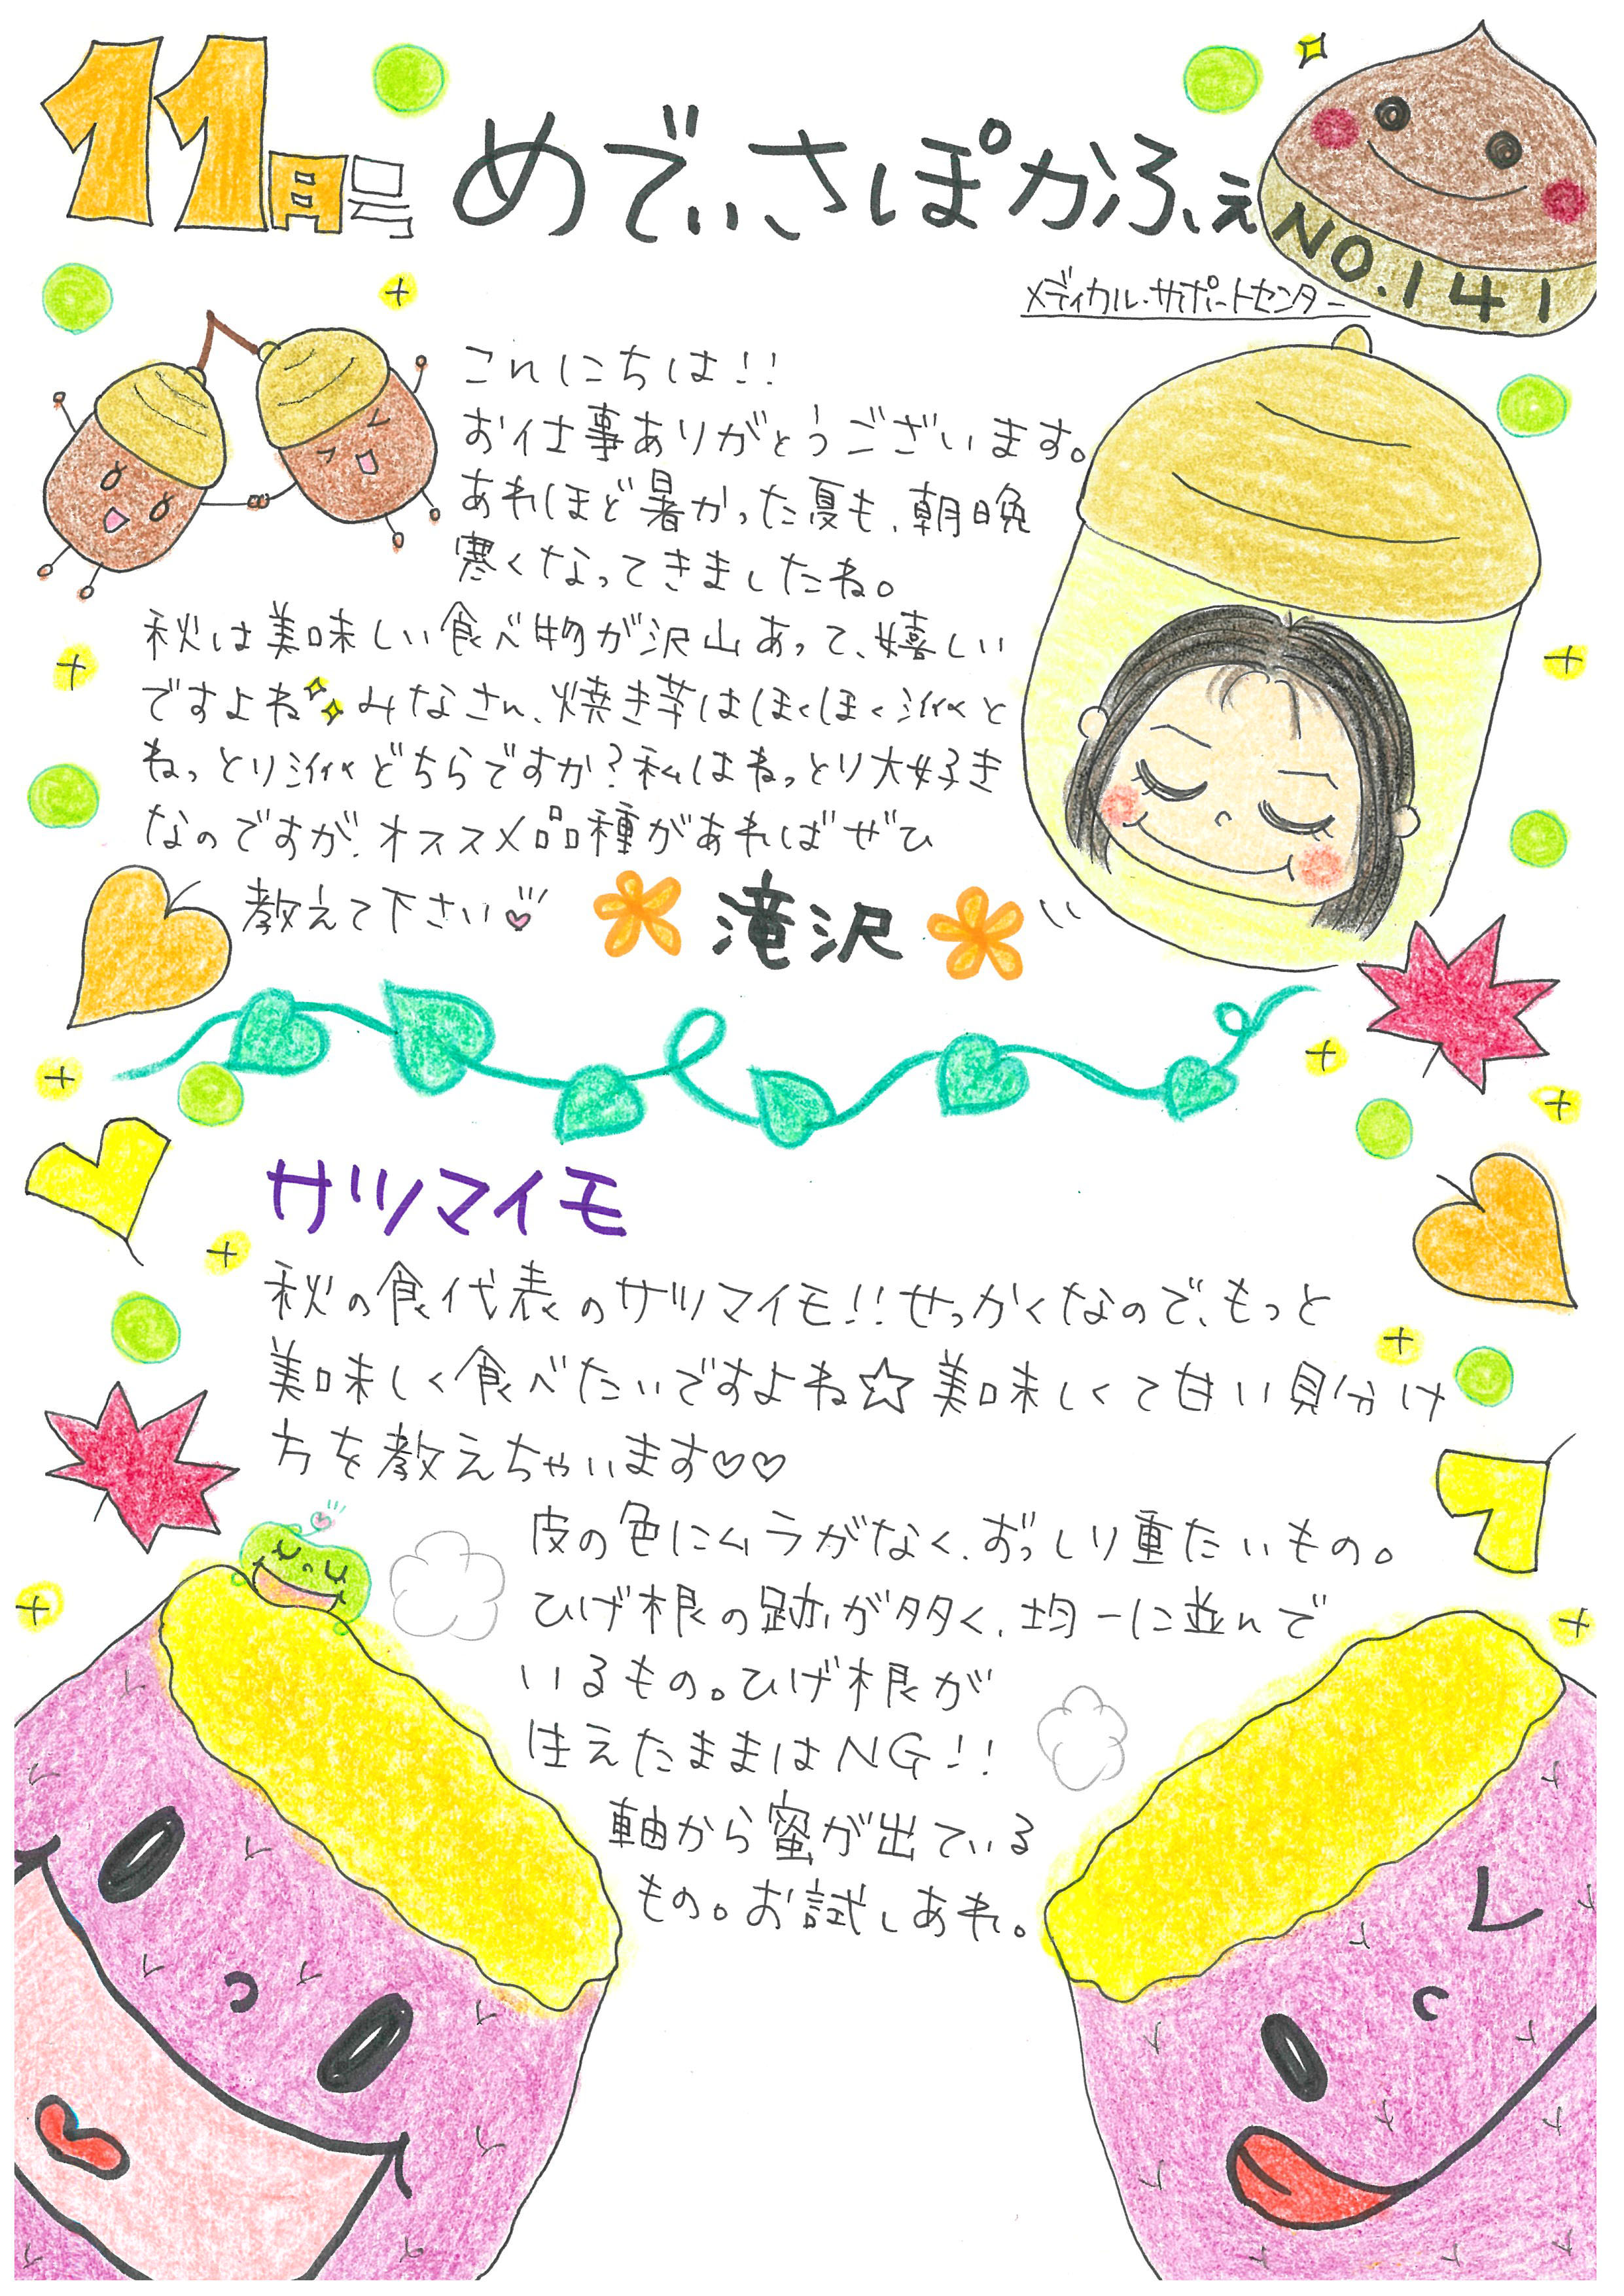 11月号
めでぃさぽかふぇ
NO.141
メディカル・サポートセンター
こんにちは!!
お仕事ありがとうございます。
あれほど暑かった夏も、朝晩
寒くなってきましたね。
秋は美味しい食べ物が沢山あって、嬉しい
ですよね みなさん、焼き芋はほくほく派と
ねっとり派どちらですか?私はねっとり大好き
なのですが、オススメ品種があればぜひ
教えて下さい♡
滝沢
サツマイモ
秋の食代表のサツマイモ!!せっかくなので、もっと
美味しく食べたいですよね☆美味しくて甘い見分け
方を教えちゃいます♡♡
皮の色にムラがなく、ずっしり重たいもの。
ひげ根の跡が多く、均一に並んで
いるもの。ひげ根が
生えたままはNG!!
軸から蜜が出ている
もの。お試しあれ。